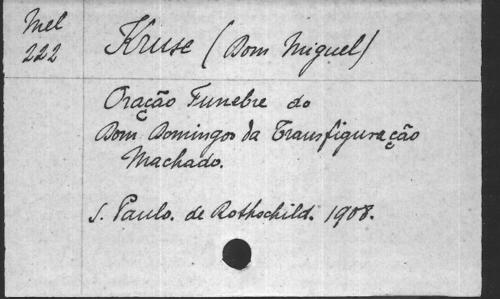 Mel
222
Kruse (Dom Miguel)
Oração Funebre do
Dom Domingos da Transfiguração
Machado.
S. Paulo. de Rothschild. 1908.